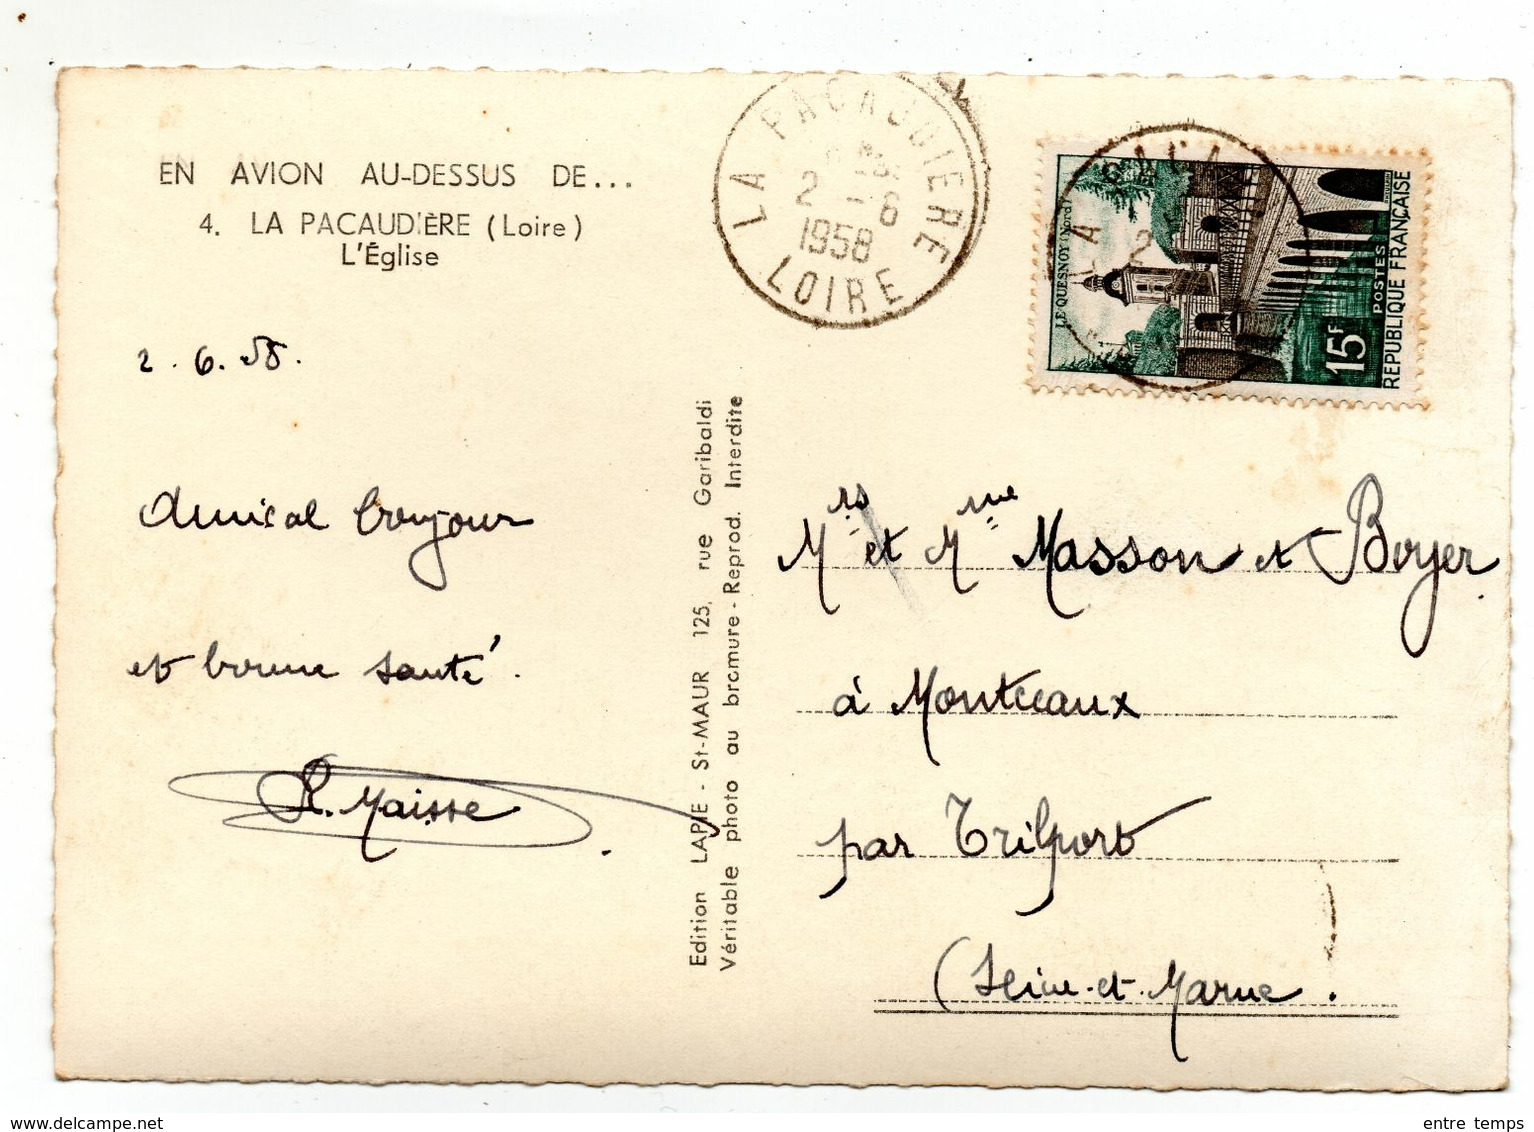 EN AVION AU-DESSUS DE...
4. LA PACAUDIÈRE (Loire)
L'Église
2.6.58.
Amical bonjour
et bonne santé.
R. Maisse
Edition LAPIE - St-MAUR 125, rue Garibaldi
Véritable photo au bromure - Reprod. Interdite
LA PACAUDIERE
2 - 6
1958
LOIRE
LE QUESNOY (Nord)
15F
POSTES
REPUBLIQUE FRANÇAISE
Mrs et Mme Masson et Boyer
à Montceaux
par Trilport
(Seine-et-Marne.
entre temps